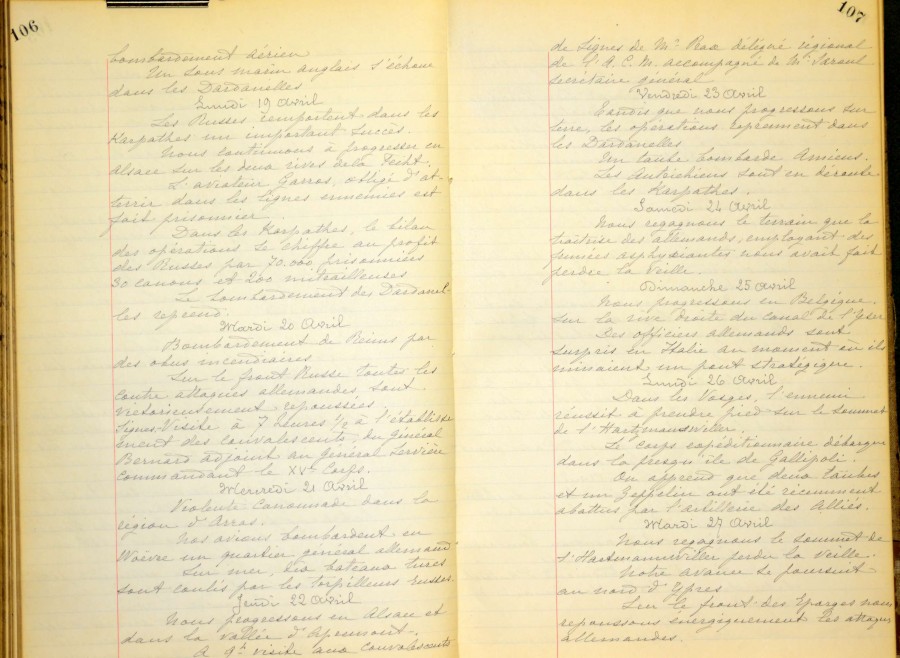 106
bombardement aérien
Un sous marin anglais s'échoue
dans les Dardanelles
Lundi 19 Avril
Les Russes remportent dans les
Karpathes un important succès.
Nous continuons à progresser en
Alsace sur les deux rives de la Fecht.
L'aviateur Garros, obligé d'at-
terrir dans les lignes ennemies est
fait prisonnier
Dans les Karpathes, le bilan
des opérations se chiffre au profit
des Russes par 70.000 prisonniers
30 canons et 200 mitrailleuses
Le bombardement des Dardanel-
les reprend.
Mardi 20 Avril
Bombardement de Reims par
des obus incendiaires
Sur le front Russe toutes les
contre attaques allemandes sont
victorieusement repoussées.
Signes-Visite à 7 heures 1/2 à l'établisse
ement des convalescents, du Général
Bernard adjoint au Général Servière
commandant le XVe Corps.
Mercredi 21 Avril
Violente canonnade dans la
région d'Arras.
Nos avions bombardent en
Woëvre un quartier général allemand
Sur mer, dix bateaux turcs
sont coulés par les torpilleurs russes.
Jeudi 22 Avril
Nous progressons en Alsace et
dans la vallée d'Apremont.
A 9h visite aux convalescents
107
de Signes de Mr Peax délégué régional
de l'A.C.M. accompagné de Mr
secrétaire général
Vendredi 23 Avril
Tandis que nous progressons sur
terre, les opérations reprennent dans
les Dardanelles
Un taube bombarde Amiens.
Les Autrichiens sont en déroute
dans les Karpathes.
Samedi 24 Avril
Nous regagnons le terrain que la
traîtrise des allemands, employant des
fumées asphyxiantes nous avait fait
perdre la veille.
Dimanche 25 Avril
Nous progressons en Belgique.
sur la rive droite du canal de l'Yser
Des officiers allemands sont
surpris en Italie au moment où ils
minaient un pont stratégique.
Lundi 26 Avril
Dans les Vosges, l'ennemi
réussit à prendre pied sur le sommet
de l'Hartmannswiller.
Le corps expéditionnaire débarque
dans la presqu'île de Gallipoli.
On apprend que deux taubes
et un Zeppelin ont été récemment
abattus par l'artillerie des Alliés.
Mardi 27 Avril
Nous regagnons le sommet de
l'Hartmannwiller perdu la veille.
Notre avance se poursuit
au nord d'Ypres
Sur le front des Eparges nous
repoussons énergiquement les attaques
allemandes.